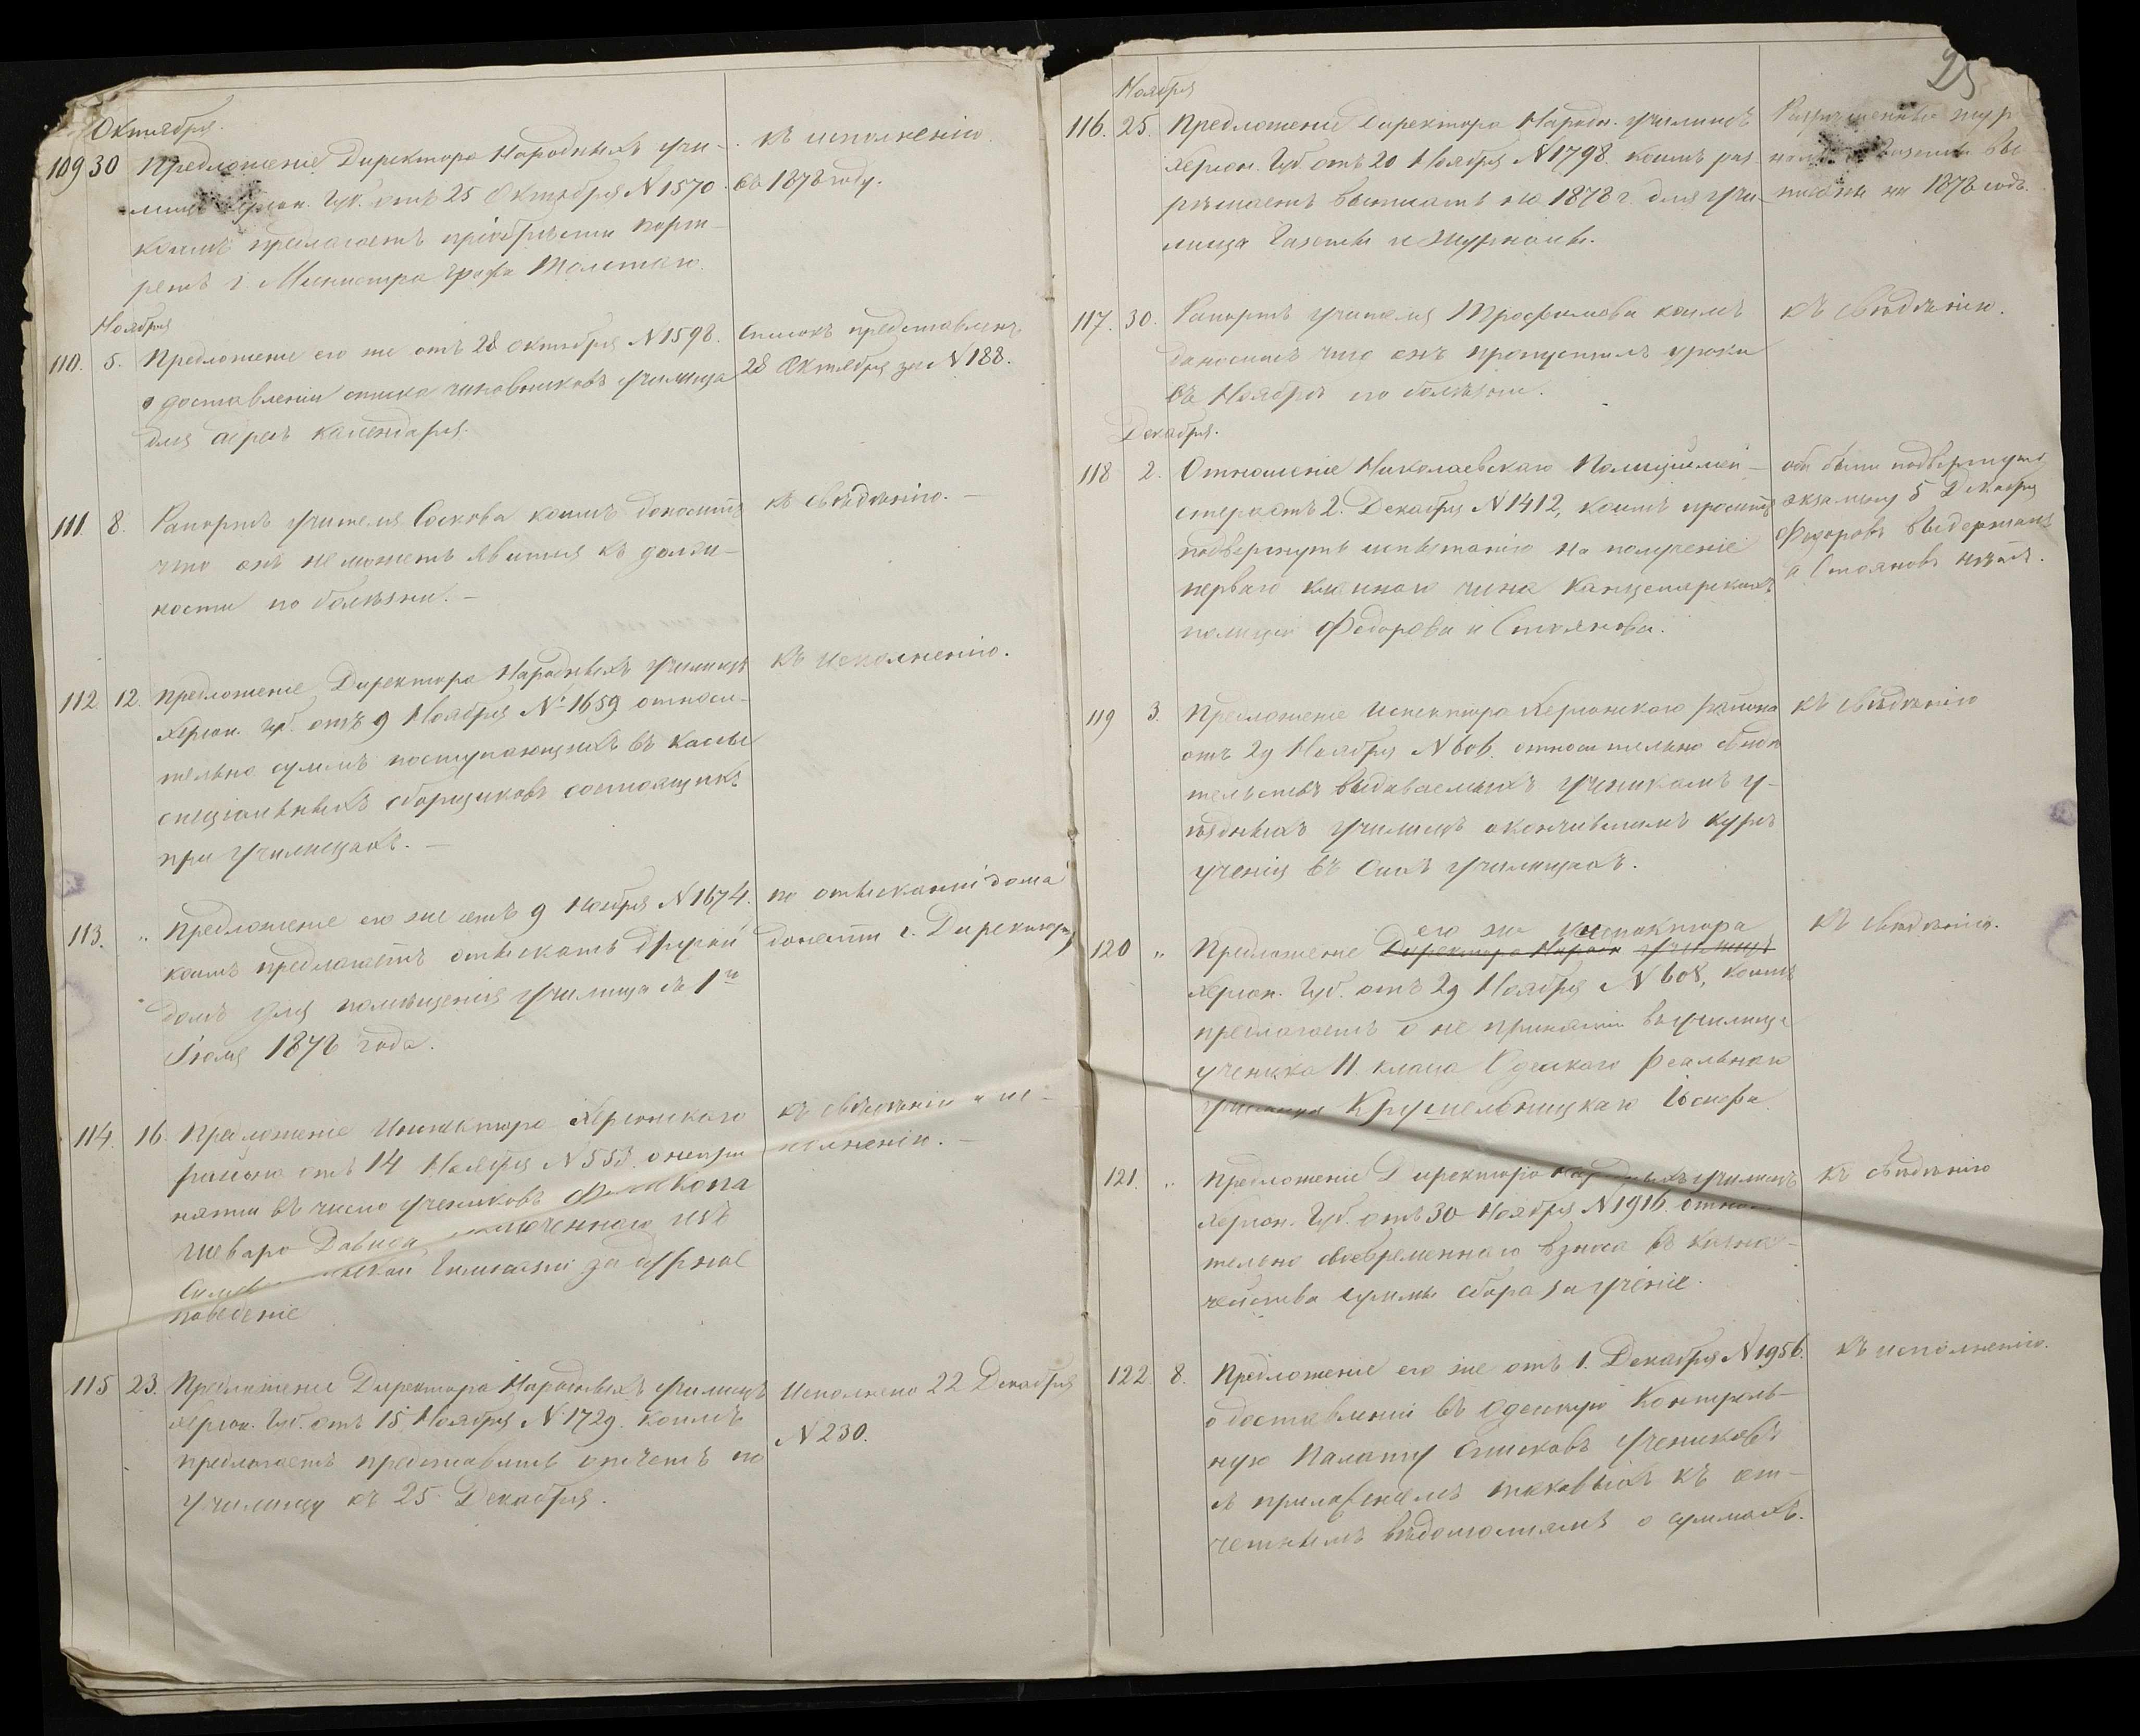 Октября.
109 30 Предложеніе Директора Народныхъ учи-
лищъ Херсон. Губ. отъ 25 Октября N 1570
коимъ предлагаетъ пріобрѣсти порт-
ретъ г. Министра графа Толстаго.
къ исполненію
въ 1878 году.
Ноября
110. 5. Предложеніе его же отъ 28 Октября N 1598.
о доставленіи списка чиновниковъ училища
для адресъ календаря.
Списокъ представленъ
28 Октября за N 188.
111. 8. Рапортъ учителя Соскова коимъ доноситъ
что онъ не можетъ явиться къ долж-
ности по болѣзни. —
къ свѣдѣнію. —
112 12. Предложеніе Директора Народныхъ училищъ
Херсон. губ. отъ 9 Ноября № 1659 относи-
тельно суммъ поступающихъ въ кассы
спеціальныхъ сборщиковъ состоящихъ
при училищахъ. —
къ исполненію.
113. „ Предложеніе его же отъ 9 Ноября N 1674.
коимъ предлагаетъ отыскать другой
домъ для помѣщенія училища съ 1го
Іюля 1878 года.
по отысканіи дома
донести г. Директору
114. 16 Предложеніе Инспектора Херсонскаго
района отъ 14 Ноября N 553. о непри
нятіи въ число учениковъ
Давида исключеннаго изъ
Гимназіи за дурное
поведеніе
къ свѣдѣнію и ис-
полненію. —
115 23. Предложеніе Директора Народныхъ училищъ
Херсон. Губ. отъ 15 Ноября N 1729. коимъ
предлагаетъ представить отчетъ по
училищу къ 25 Декабря.
Исполнено 22 Декабря
N 230.
25
Ноября
116. 25. Предложеніе Директора Народн. училищъ
Херсон. Губ. отъ 20 Ноября N 1798. коимъ раз
рѣшаетъ выписать на 1878 г. для учи-
лища газеты и журналы.
жур
газеты вы
писаны на 1878 годъ.
117. 30. Рапортъ учителя Трофимова коимъ
доноситъ что онъ пропустилъ уроки
въ Ноябрѣ по болѣзни.
къ свѣдѣнію.
Декабря.
118 2. Отношеніе Николаевскаго Полицiймей-
стера отъ 2. Декабря N 1412, коимъ проситъ
подвергнуть испытанію на полученіе
перваго класнаго чина Канцелярскихъ
полиціи Федорова и Стоянова.
оба были подвергнуты
экзамену 5 Декабря
Федоровъ выдержалъ
а Стояновъ нѣтъ.
119 3. Предложеніе Инспектора Херсонскаго района
отъ 29 Ноября N 606. относительно свидѣ
тельствъ выдаваемыхъ ученикамъ у-
ѣздныхъ училищъ окончившимъ курсъ
ученія въ сихъ училищахъ.
къ свѣдѣнію
его же инспектора
120 „ Предложеніе Директора Народн училищъ
Херсон. Губ. отъ 29 Ноября N 608, коимъ
предлагаетъ о не принятіи въ училище
ученика II класа Одескаго Реальнаго
училища Крушельницкаго Іосифа
къ свѣдѣнію.
121. „ Предложеніе Директора Народныхъ училищъ
Херсон. Губ. отъ 30 Ноября N 1916. относи
тельно своевременнаго взноса въ казна-
чейства суммы сбора за ученіе.
къ свѣдѣнію
122. 8. Предложеніе его же отъ 1. Декабря N 1956.
о доставленіи въ Одесскую Контроль-
ную Палату списковъ учениковъ
и приложеніемъ таковыхъ къ от-
четнымъ вѣдомостямъ о суммахъ.
къ исполненію.